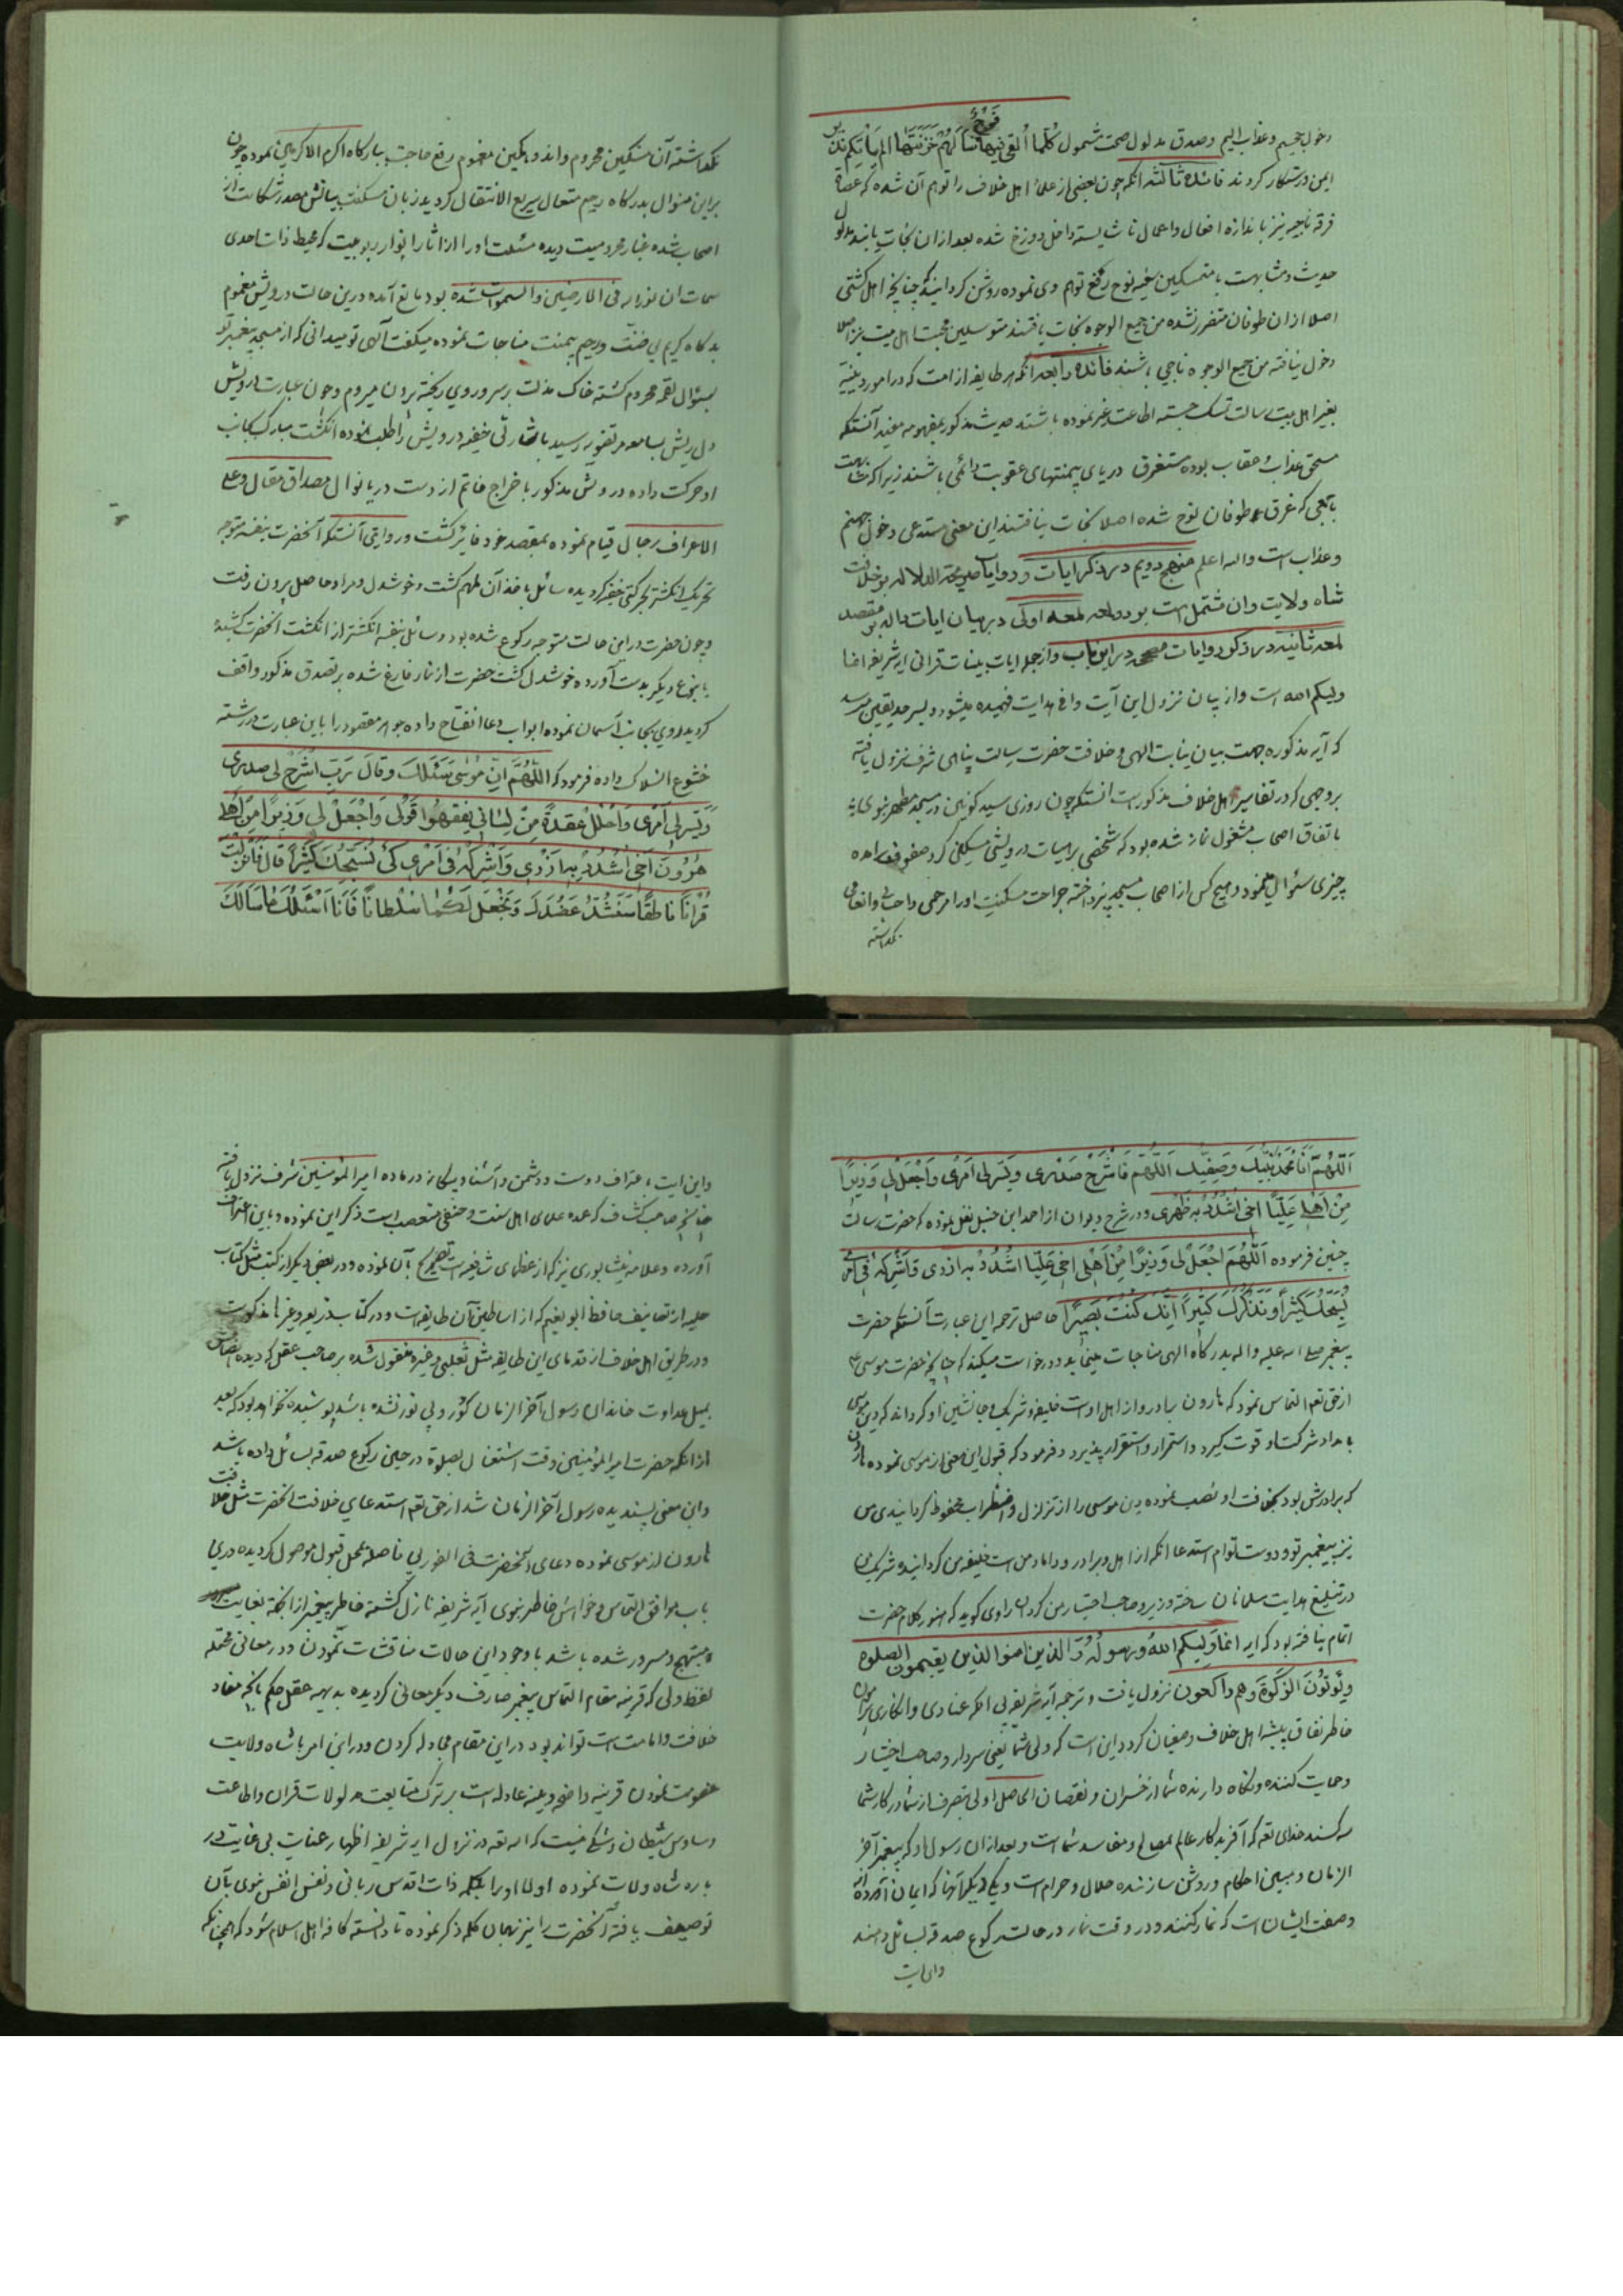 دخول جحیم و عذاب الیم و صدق مدلول صحت شمول كُلَّما اُلقِیَ فیها فَوْجٌ سَاَلَهُمْ خَزَنَتُها اَلَم یَأتِكُم نذیر
ایمن و رستکار کردند فائدة ثالثه آنکه چون بعضی از علماء اهل خلاف را توهم آن شده که عصاة
فرقه ناجیه نیز باندازه افعال و اعمال ناشایسته داخل دوزخ شده بعد ازان نجات یابند مدلول
حدیث و مشابهت با متمسکین سفینه نوح رفع توهم وی نموده روشن کردانید که چنانچه اهل کشتی
اصلا ازان طوفان متضرر نشده من جمیع الوجوه نجات یافتند متوسلین محبت اهل بیت نیز اصلا
دخول نیافته من جمیع الوجوه ناجی باشند فائدة رابعه آنکه هر طایفه از امت که در امور دینیه
بغیر اهل بیت رسالت تمسک جسته اطاعت غیر نموده باشند حدیث مذکور بمفهومه مفید آنستکه
مستحق عذاب و عقاب بوده مستغرق دریای بیمنتهای عقوبت دائمی باشند زیرا که مشابهت
بآنجمعی که غرق طوفان نوح شده اصلا نجات نیافتند این معنی مستدعی دخول جهنم
و عذاب است والله اعلم منهج دویم در ذکر ایات و روایات صریحة الدلاله بر خلافت
شاه ولایت و ان مشتمل است بر دو لمعه لمعه اولی در بیان ایات داله بر مقصد
لمعه ثانیه در ذکر روایات صحیحه در این باب و از جمله ایات بینات قرانی ایه شریفه انما
ولیکم الله است و از بیان نزول این آیت وافی هدایت فهمیده میشود و بسرحد یقین میرسد
که آیه مذکوره جهت بیان نیابت الهی و خلافت حضرت رسالت پناهی شرف نزول یافته
بروجهی که در تفاسیر اهل خلاف مذکور است انستکه چون روزی سید کونین در مسجد مطهر نبوی
باتفاق اصحاب مشغول نماز شده بود که شخصی بر هیات درویشی مسکین کرد صفوف برامده
چیزی سئوال مینمود و هیچ کس از اصحاب مسجد نپرداخته جراحت مسکنت اورا مرحمی و احسانی و انعامی
نکذاشته
نکذاشته آن مسکین محروم و اندوهکین مغموم رفع حاجت ببارکاه اکرم الاکرمین نموده چون
براین منوال بدرکاه رحیم متعال سریع الانتقال کردید زبان مسکنت بیانش مصدر شکایت از
اصحاب شده غبار محرومیت دیده مسئلت اورا از اثار انوار ربوبیت که محیط ذات احدی
سمات ان نورا فی الارضین والسموات شده بود مانع آمده درین حالت درویش مغموم
بدرکاه کریم بی ضنت و رحیم بیمنت مناجات نموده میکفت الهی تو میدانی که از مسجد پیغمبر تو
بسئوال لقمه محروم کشته خاک مذلت بر سر و روی ریخته برون میروم و چون عبارت درویش
دل ریش بسامعه مرتضویه رسید باشارتی خفیه درویش را طلب نموده انکشت مبارک بجانب
او حرکت داده درویش مذکور با خراج خاتم از دست دریا نوال مصداق مقال و علی
الاعراف رجال قیام نموده بمقصد خود فائز کشت و روایتی آنستکه آنحضرت بنفسه متوجه
تحریک انکشتر بحرکتی خفیه کردیده سائل باخذ آن ملهم کشت و خوشدل و مراد حاصل برون رفت
و چون حضرت در این حالت متوجه رکوع شده بود و سائل بنفسه انکشتر از انکشت انحضرت کشیده
یا بنوع دیکر بدست آورده خوشدل کشت حضرت از نماز فارغ شده بر تصدق مذکور واقف
کردید و روی بجانب آسمان نموده ابواب دعا انفتاح داده جواهر مقصود را باین عبارت در رشته
خشوع انسلاک داده فرمود که اَللّٰهُمَّ اِنَّ مُوسٰی سَئَلَكَ وَ قالَ رَبِّ اشْرَحْ لی صَدْری
وَ یَسِّرْ لی اَمْری وَ احْلُلْ عُقْدَةً مِنْ لِسانی یَفْقَهُوا قَوْلی وَ اجْعَلْ لی وَزیراً مِنْ اَهْلی
هٰرُونَ اَخی اُشْدُدْ بِهِ اَزْری وَ اَشْرِکْهُ فی اَمْری کَیْ نُسَبِّحَكَ کَثیراً قالَ فَاَنْزَلْتَ
قُرْاناً ناطِقاً سَنَشُدُّ عَضُدَكَ وَ نَجْعَلُ لَکُما سُلْطاناً فَاَنَا اَسْئَلُكَ ما سَاَلَكَ
اَللّٰهُمَّ اَنَا مُحَمَّدٌ نَبِیُّكَ وَ صَفِیُّكَ اَللّٰهُمَّ فَاشْرَحْ صَدْری وَ یَسِّرْ لی اَمْری وَ اجْعَلْ لی وَزیراً
مِنْ اَهْلی عَلِیّاً اَخی اُشْدُدْ بِهِ ظَهْری و در شرح دیوان از احمد ابن حنبل نقل نموده که حضرت رسالت
چنین فرموده اَللّٰهُمَّ اجْعَلْ لی وَزیراً مِنْ اَهْلی اَخی عَلِیّاً اُشْدُدْ بِهِ اَزْری وَ اَشْرِکْهُ فی اَمْری
نُسَبِّحَكَ کَثیراً وَ نَذْکُرَكَ کَثیراً اِنَّكَ کُنْتَ بَصیراً حاصل ترجمه این عبارت آنستکه حضرت
پیغمبر صلی الله علیه واله بدرکاه الهی مناجات مینماید و درخواست میکند که چنانچه حضرت موسی ع
از حق تعم التماس نمود که هارون برادر و از اهل اوست خلیفه و شریک و جانشین او کرداند که دین موسی
بامداد شرکت او قوت کیرد و استمرار و استقرار پذیرد و فرمود که قبول این معنی از موسی نموده هارون
که برادرش بود بخلافت او نصب نموده دین موسی را از تزلزل و اضطراب محفوظ کردانیدی من
نیز پیغمبر تو و دوست توام استدعا انکه از اهل و برادر و داماد من است خلیفه من کردانیده و شریک من
در تبلیغ هدایت مسلمانان ساخته وزیر و صاحب اختیار من کردان راوی کوید که هنوز کلام حضرت
اتمام نیافته بود که ایه انما ولیکم الله و رسوله و الذین امنوا الذین یقیمون الصلوة
و یؤتون الزکوة و هم راکعون نزول یافت و ترجمه آیه شریفه بی انکه عنادی و انکاری پیرامون
خاطر نفاق پیشه اهل خلاف و ضغیان کردد این است که ولی شما یعنی سردار و صاحب اختیار
و حمایت کننده و نکاه دارنده شما از خسران و نقصان الحاصل اولی بتصرف از شما در کار شما
سه کسند خدای تعم که آفریدکار عالم بمصالح و مفاسد شماست و بعد ازان رسول او که پیغمبر آخر
الزمان و مبین احکام و روشن سازنده حلال و حرام است و یکی دیکر آنها که ایمان آورده اند
و صفت ایشان است که نماز کنند و در وقت نماز در حالت رکوع صدقه بسائل دهند
واین ایت
واین ایت باعتراف دوست و دشمن و آشنا و بیکانه در ماده امیر المؤمنین شرف نزول یافته
چنانچه صاحب کشاف که عمده علمای اهل سنت و حنفی متعصب است ذکر این نموده و باین اعتراف
آورده و علامه نیشابوری نیز که از عظمای شافعیه است تصریح بآن نموده و در بعضی دیکر از کتب مثل کتاب
حلیه از تصانیف حافظ ابو نعیم که از اساطین آن طایفه است و در کتاب ذریعه و غیرها مذکور است
و در طریق اهل خلاف از قدمای این طایفه مثل ثعلبی و غیره منقول شده بر صاحب عقل که دیده انصافش
بمیل عداوت خاندان رسول آخر الزمان کور و بی نور نشده باشد پوشیده نخواهد بود که بعد
ازانکه حضرت امیر المؤمنین وقت اشتغال بصلوة در حین رکوع صدقه بسائل داده باشد
و این معنی پسندیده رسول آخر الزمان شد از حق تعم استدعای خلافت انحضرت مثل خلافت
هارون از موسی نموده دعای آنحضرت فی الفور بی فاصله بمحل قبول موصول کردیده درین
باب موافق التماس و خواهش خاطر نبوی آیه شریفه نازل کشته خاطر پیغمبر از انجهة بغایت
مبتهج و مسرور شده باشد با وجود این حالات مناقشات نمودن و در معانی محتمله
لفظ ولی که قرینه مقام التماس پیغمبر صارف دیکر معانی کردیده بدیهه عقل حکم بانکه مفاد
خلافت و امامت است تواند بود در این مقام مجادله کردن و در این امر با شاه ولایت
خصومت نمودن قرینه واضحه و بینه عادله است بر ترک متابعت مدلولات قران و اطاعت
وساوس شیطان و شکی نیست که الله تعم در نزول ایه شریفه اظهار عنایت بی غایت در
باره شاه ولایت نموده اولا اورا بکلمه ذات اقدس ربانی و نفس انفس نبوی بآن
توصیف یافته آنحضرت را نیز بهمان کلمه ذکر نموده تا دانسته کافه اهل اسلام شود که همچنانکه